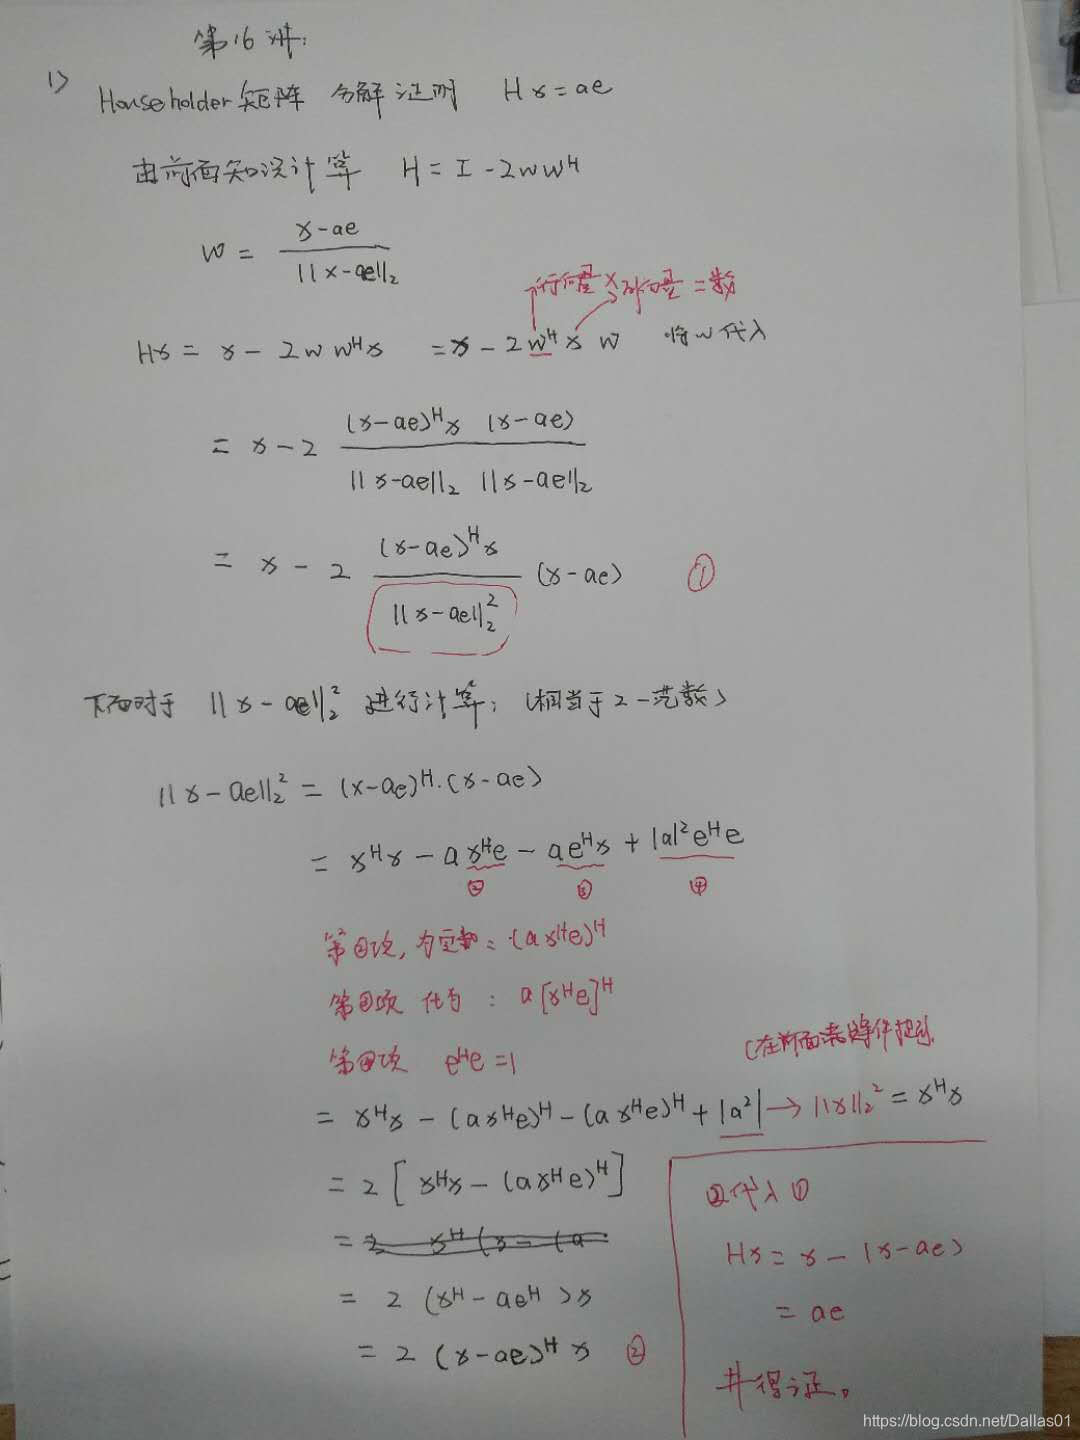 第16讲:
1) Householder矩阵 分解证明 Hx=ae
由前面知识计算 H = I - 2wwᴴ
w = (x-ae) / ||x-ae||₂
行向量 × 列向量 = 数
Hx = x - 2w wᴴx = x - 2wᴴx w 将w代入
= x - 2 (x-ae)ᴴx (x-ae) / ||x-ae||₂ ||x-ae||₂
= x - 2 (x-ae)ᴴx / ||x-ae||₂² (x-ae) ①
下面对于 ||x-ae||₂² 进行计算; (相当于2-范数)
||x-ae||₂² = (x-ae)ᴴ·(x-ae)
= xᴴx - a xᴴe - aeᴴx + |a|²eᴴe
② ③ ④
第②项, 为实数: (axᴴe)ᴴ
第③项 化为 : a[xᴴe]ᴴ
第④项 eᴴe = 1
(在前面满足条件
= xᴴx - (axᴴe)ᴴ - (axᴴe)ᴴ + |a²| → ||x||₂² = xᴴx
= 2 [ xᴴx - (axᴴe)ᴴ ]
= 2 (xᴴ - aeᴴ) x
= 2 (x-ae)ᴴ x ②
②代入①
Hx = x - (x-ae)
= ae
#得证。
https://blog.csdn.net/Dallas01